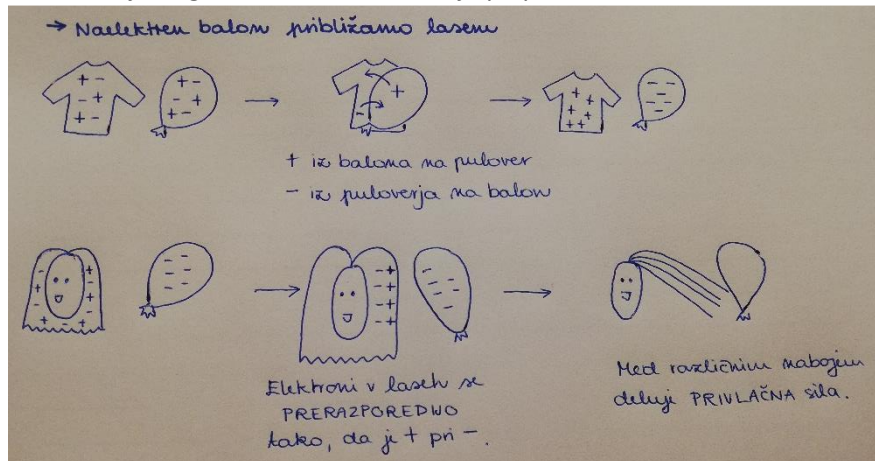 → Naelektren balon približamo lasem
+ iz balona na pulover
- iz puloverja na balon
Elektroni v laseh se
PRERAZPOREDIJO
tako, da je + pri -.
Med različnim nabojem
deluje PRIVLAČNA sila.